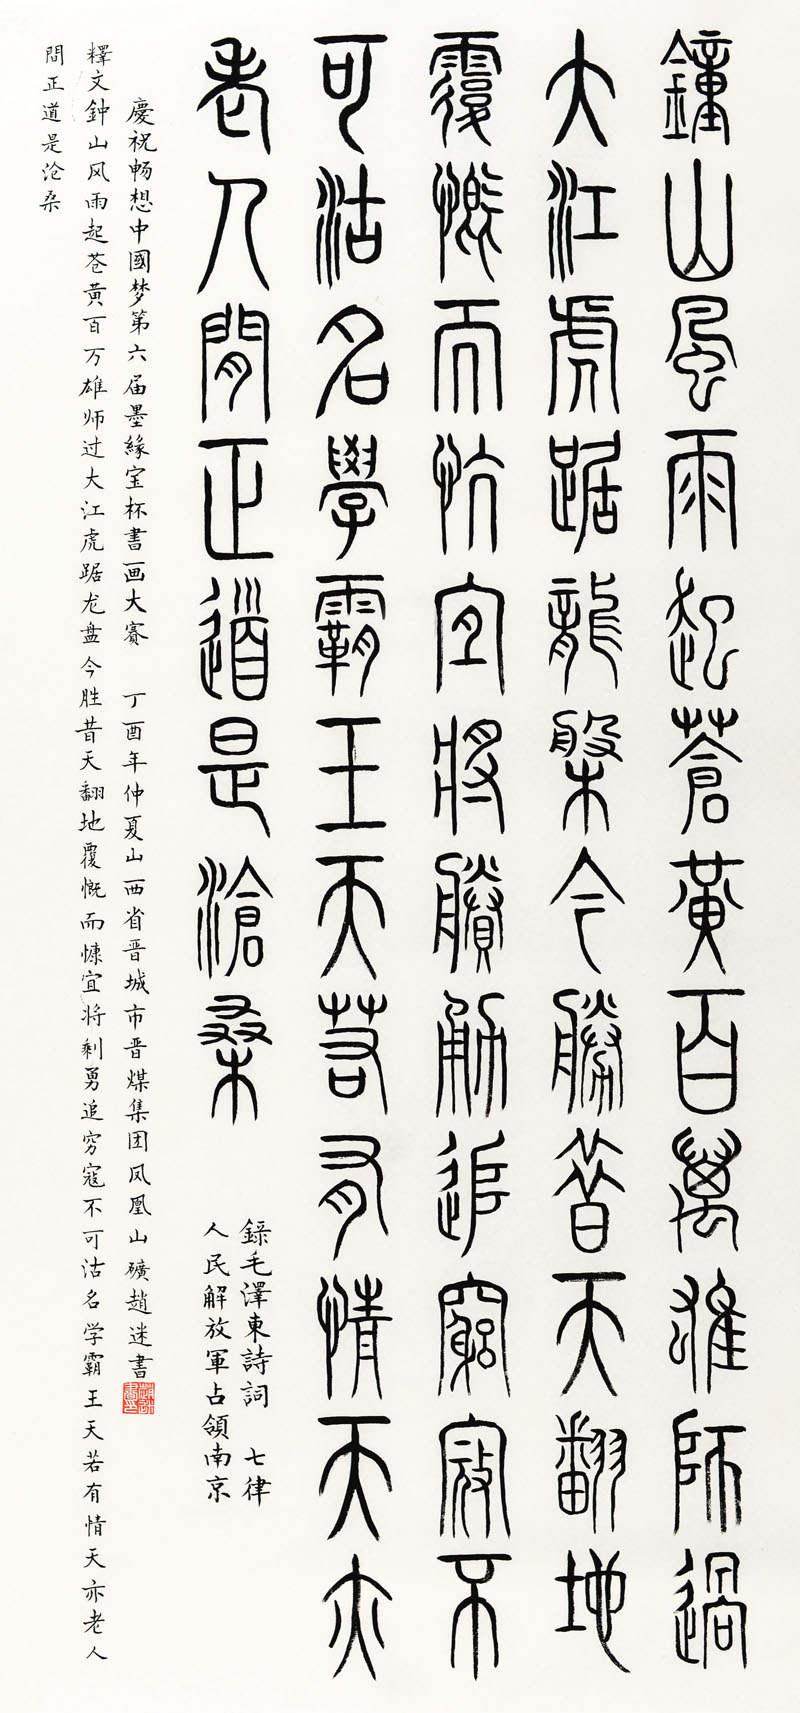 鐘山風雨起蒼黃百萬雄師過
大江虎踞龍盤今勝昔天翻地
覆慨而忼宜將賸勇追窮寇不
可沽名學霸王天若有情天亦
老人間正道是滄桑
錄毛澤東詩詞 七律
人民解放軍占領南京
慶祝畅想中國梦第六届墨緣宝杯書画大赛 丁酉年仲夏山西省晋城市晋煤集团凤凰山礦趙迷書
釋文鈡山风雨起苍黄百万雄师过大江虎踞龙盘今胜昔天翻地覆慨而慷宜将剩勇追穷寇不可沽名学霸王天若有情天亦老人
間正道是沧桑